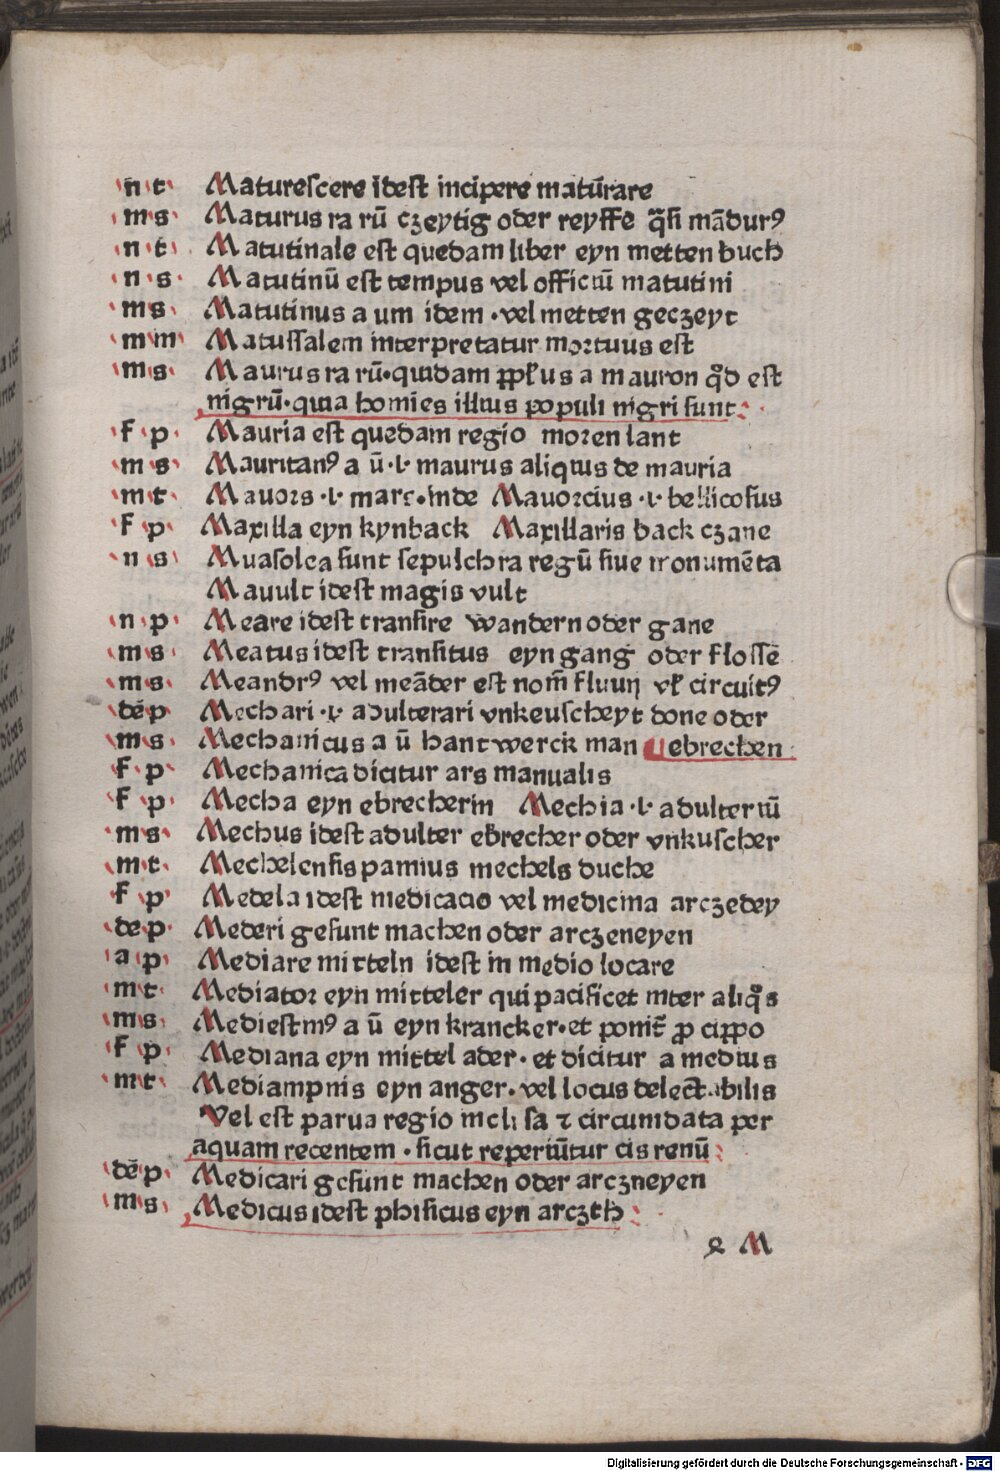 n t Matureſcere ideſt incipere matūrare
m s Maturus ra rū czeytig oder reyffē q̄ſi mādurꝰ
n t Matutinale eſt quedam liber eyn metten buch
n s Matutinū eſt tempus vel officiū matutini
m s Matutinus a um idem · vel metten geczeyt
m m Matuſſalem interpretatur moꝛtuus eſt
m s Maurus ra rū · quidam a mauron qd̄ eſt
nigrū · quia homīes illius populi nigri ſunt
f p Mauria eſt quedam regio moꝛen lant
m s Mauritanꝰ a ū · ł · maurus aliquis de mauria
m t Mavoꝛs · ł · marc · inde Mavoꝛcius · ł · bellicoſus
f p Maxilla eyn kynback Maxillaris back czane
n s Muaſolea ſunt ſepulchra regū ſiue monumēta
Mauult ideſt magis vult
n p Meare ideſt tranſire wandern oder gane
m s Meatus ideſt tranſitus eyn gang oder floſſē
m s Meandrꝰ vel meāder eſt nom̄ fluuij vł circuitꝰ
dē p Mechari · ł · adulterari vnkeuſcheyt done oder
m s Mechanicus a ū hantwerck man ebrechen
f p Mechanica dicitur ars manualis
f p Mecha eyn ebrecherin Mechia · ł · adulteriū
m s Mechus ideſt adulter ebrecher oder vnkuſcher
m t Mechelenſis pannus mechels duche
f p Medela ideſt medicacio vel medicina arczedey
de p Mederi geſunt machen oder arczeneyen
a p Mediare mitteln ideſt in medio locare
m t Mediatoꝛ eyn mitteler qui pacificet inter aliqͦs
m s Medieſtmꝰ a ū eyn krancker · et ponit̄ ꝓ
f p Mediana eyn mittel ader · et dicitur a medius
m t Mediampnis eyn anger · vel locus delectabilis
Vel eſt parua regio incluſa ⁊ circumdata per
aquam recentem · ſicut reperiūtur cis renū
dē p Medicari geſunt machen oder arczneyen
m s Medicus ideſt phiſicus eyn arczth
M
Digitalisierung gefördert durch die Deutsche Forschungsgemeinschaft - DFG